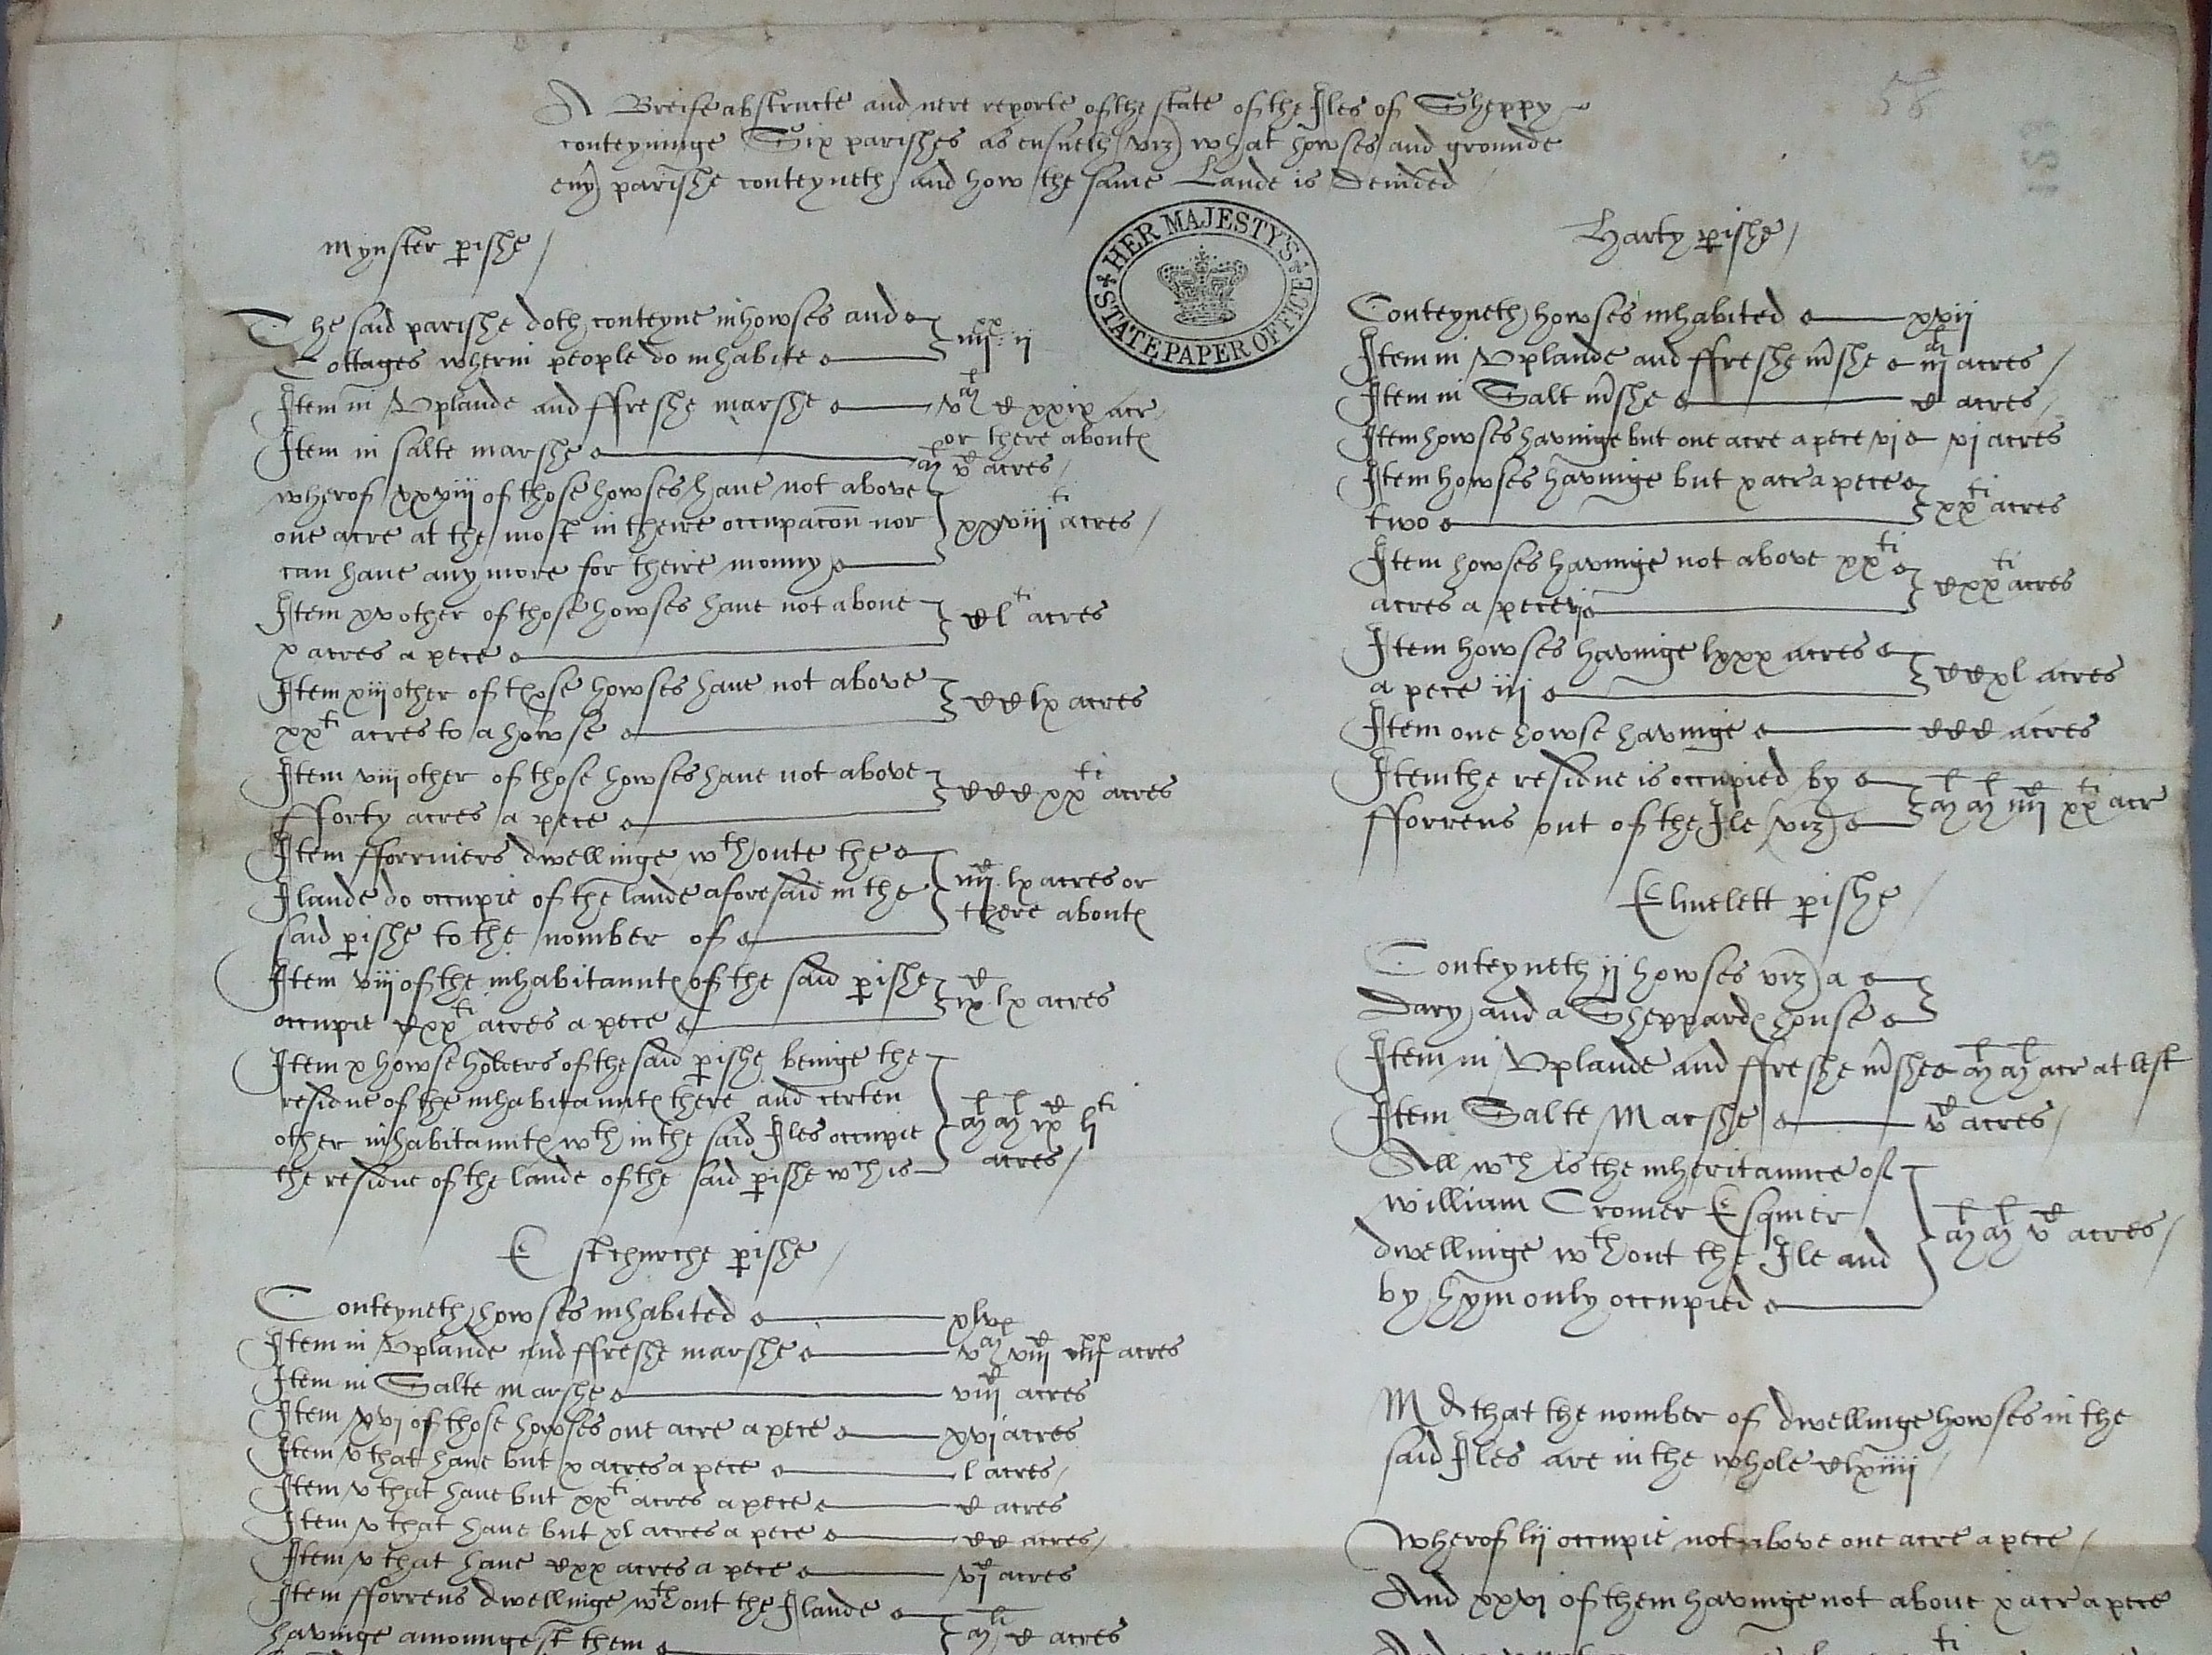 A Breife abstructe and nere reporte of the state of the Iles of Sheppy
conteyninge Six parishes as ensueth vizt what howses and grounde
eny parishe conteyneth and how the same Lande is Devided
58
159
Mynster pishe
The said parishe doth conteyne in howses and
Cottages wherin people do inhabite iiijxx ij
Item in Uplande and ffreshe marshe vMl C xxix acr
or there aboute
Item in salte marshe Ml vC acres
wherof xxviii of those howses have not above
one acre at the most in theire occupacon nor
can have any more for theire monny xxviiiti acres
Item xv other of those howses have not above
x acres a pece C lti acres
Item xiii other of those howses have not above
xxti acres to a howse CC lx acres
Item viii other of those howses have not above
fforty acres a pece CCC xxti acres
Item fforriners dwellinge wthoute the
Ilande do occupie of the lande aforesaid in the
said pishe to the nomber of iiijC lx acres or
there aboute
Item viii of the inhabitaunte of the said pishe
occupie Cxxti acres a pece ixC lx acres
Item x howseholders of the said pishe beinge the
residue of the inhabitaunte there and certen
other inhabitaunte wth in the said Iles occupie
the residue of the lande of the said pishe wch is Ml Ml ixC lti
acres
Estchurche pishe
Conteyneth howses inhabited
Item in Uplande and ffreshe marshe vMl viiiC iiijxx acres
Item in Salte marshe viiiC acres
Item xvi of those howses one acre a pece xvi acres
Item v that have but x acres a pece l acres
Item v that have but xxti acres a pece C acres
Item v that have but xl acres a pece CC acres
Item v that have Cxx acres a pece viC acres
Item fforrens dwellinge wthout the Ilande
havinge amoungest them Ml C acres
HER MAJESTY'S
STATE PAPER OFFICE
Harty pishe
Conteyneth howses inhabited xxii
Item in Uplande and ffreshe mshe iijMl acres
Item in Salt mshe C acres
Item howses havinge but one acre a pece vi vi acres
Item howses havinge but x acr a pece
two xxti acres
Item howses havinge not above xxti
acres a pece vj Cxxti acres
Item howses havinge lxxx acres
a pece iij CCxl acres
Item one howse havinge CCC acres
Item the residue is occupied by
fforrens out of the Ile vizt Ml Ml iiijC xxti acr
Elmelett pishe
Conteyneth ij howses vizt a
Dary and a Shepparde house
Item in Uplande and ffreshe mshe Ml Ml acr at lest
Item Salte Marshe vC acres
All wch is the inheritaunce of
William Cromer Esquier
dwellinge wthout the Ile and
by hym only occupied Ml Ml vC acres
Md that the nomber of dwellinge howses in the
said Iles are in the whole Clxiiii
Wherof lij occupie not above one acre a pece
And xxvi of them havinge not above x acr a pece